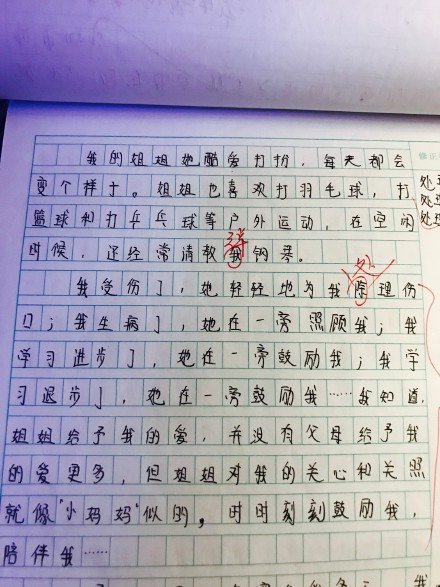 我的姐姐她酷爱打扮，每天都会
变个样子。姐姐也喜欢打羽毛球，打
篮球和打乒乓球等户外运动，在空闲
时候，还经常清教我钢琴。
弹
我受伤了，她轻轻地为我原理伤
处
口；我生病了，她在一旁照顾我；我
学习进步了，她在一旁鼓励我；我学
习退步了，她在一旁鼓励我……我知道，
姐姐给予我的爱，并没有父母给予我
的爱更多，但姐姐对我的关心和关照
就像"小妈妈"似的，时时刻刻鼓励我，
陪伴我……
修正
处理
处理
处理